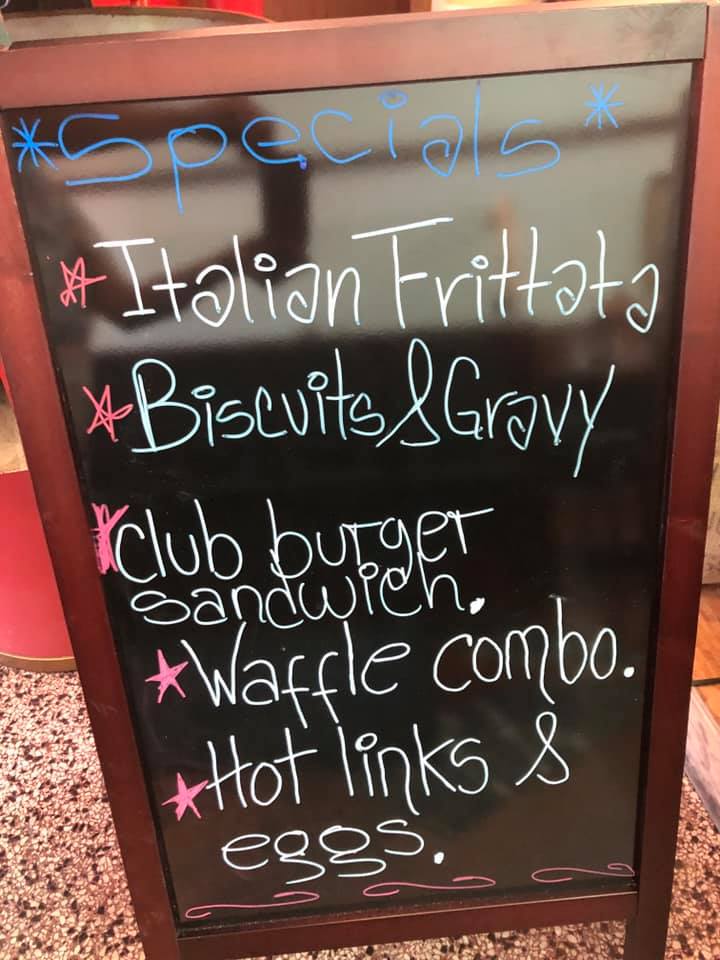 *Specials*
*Italian Frittata
*Biscuits & Gravy
*Club burger
sandwich.
*Waffle combo.
*Hot links &
eggs.